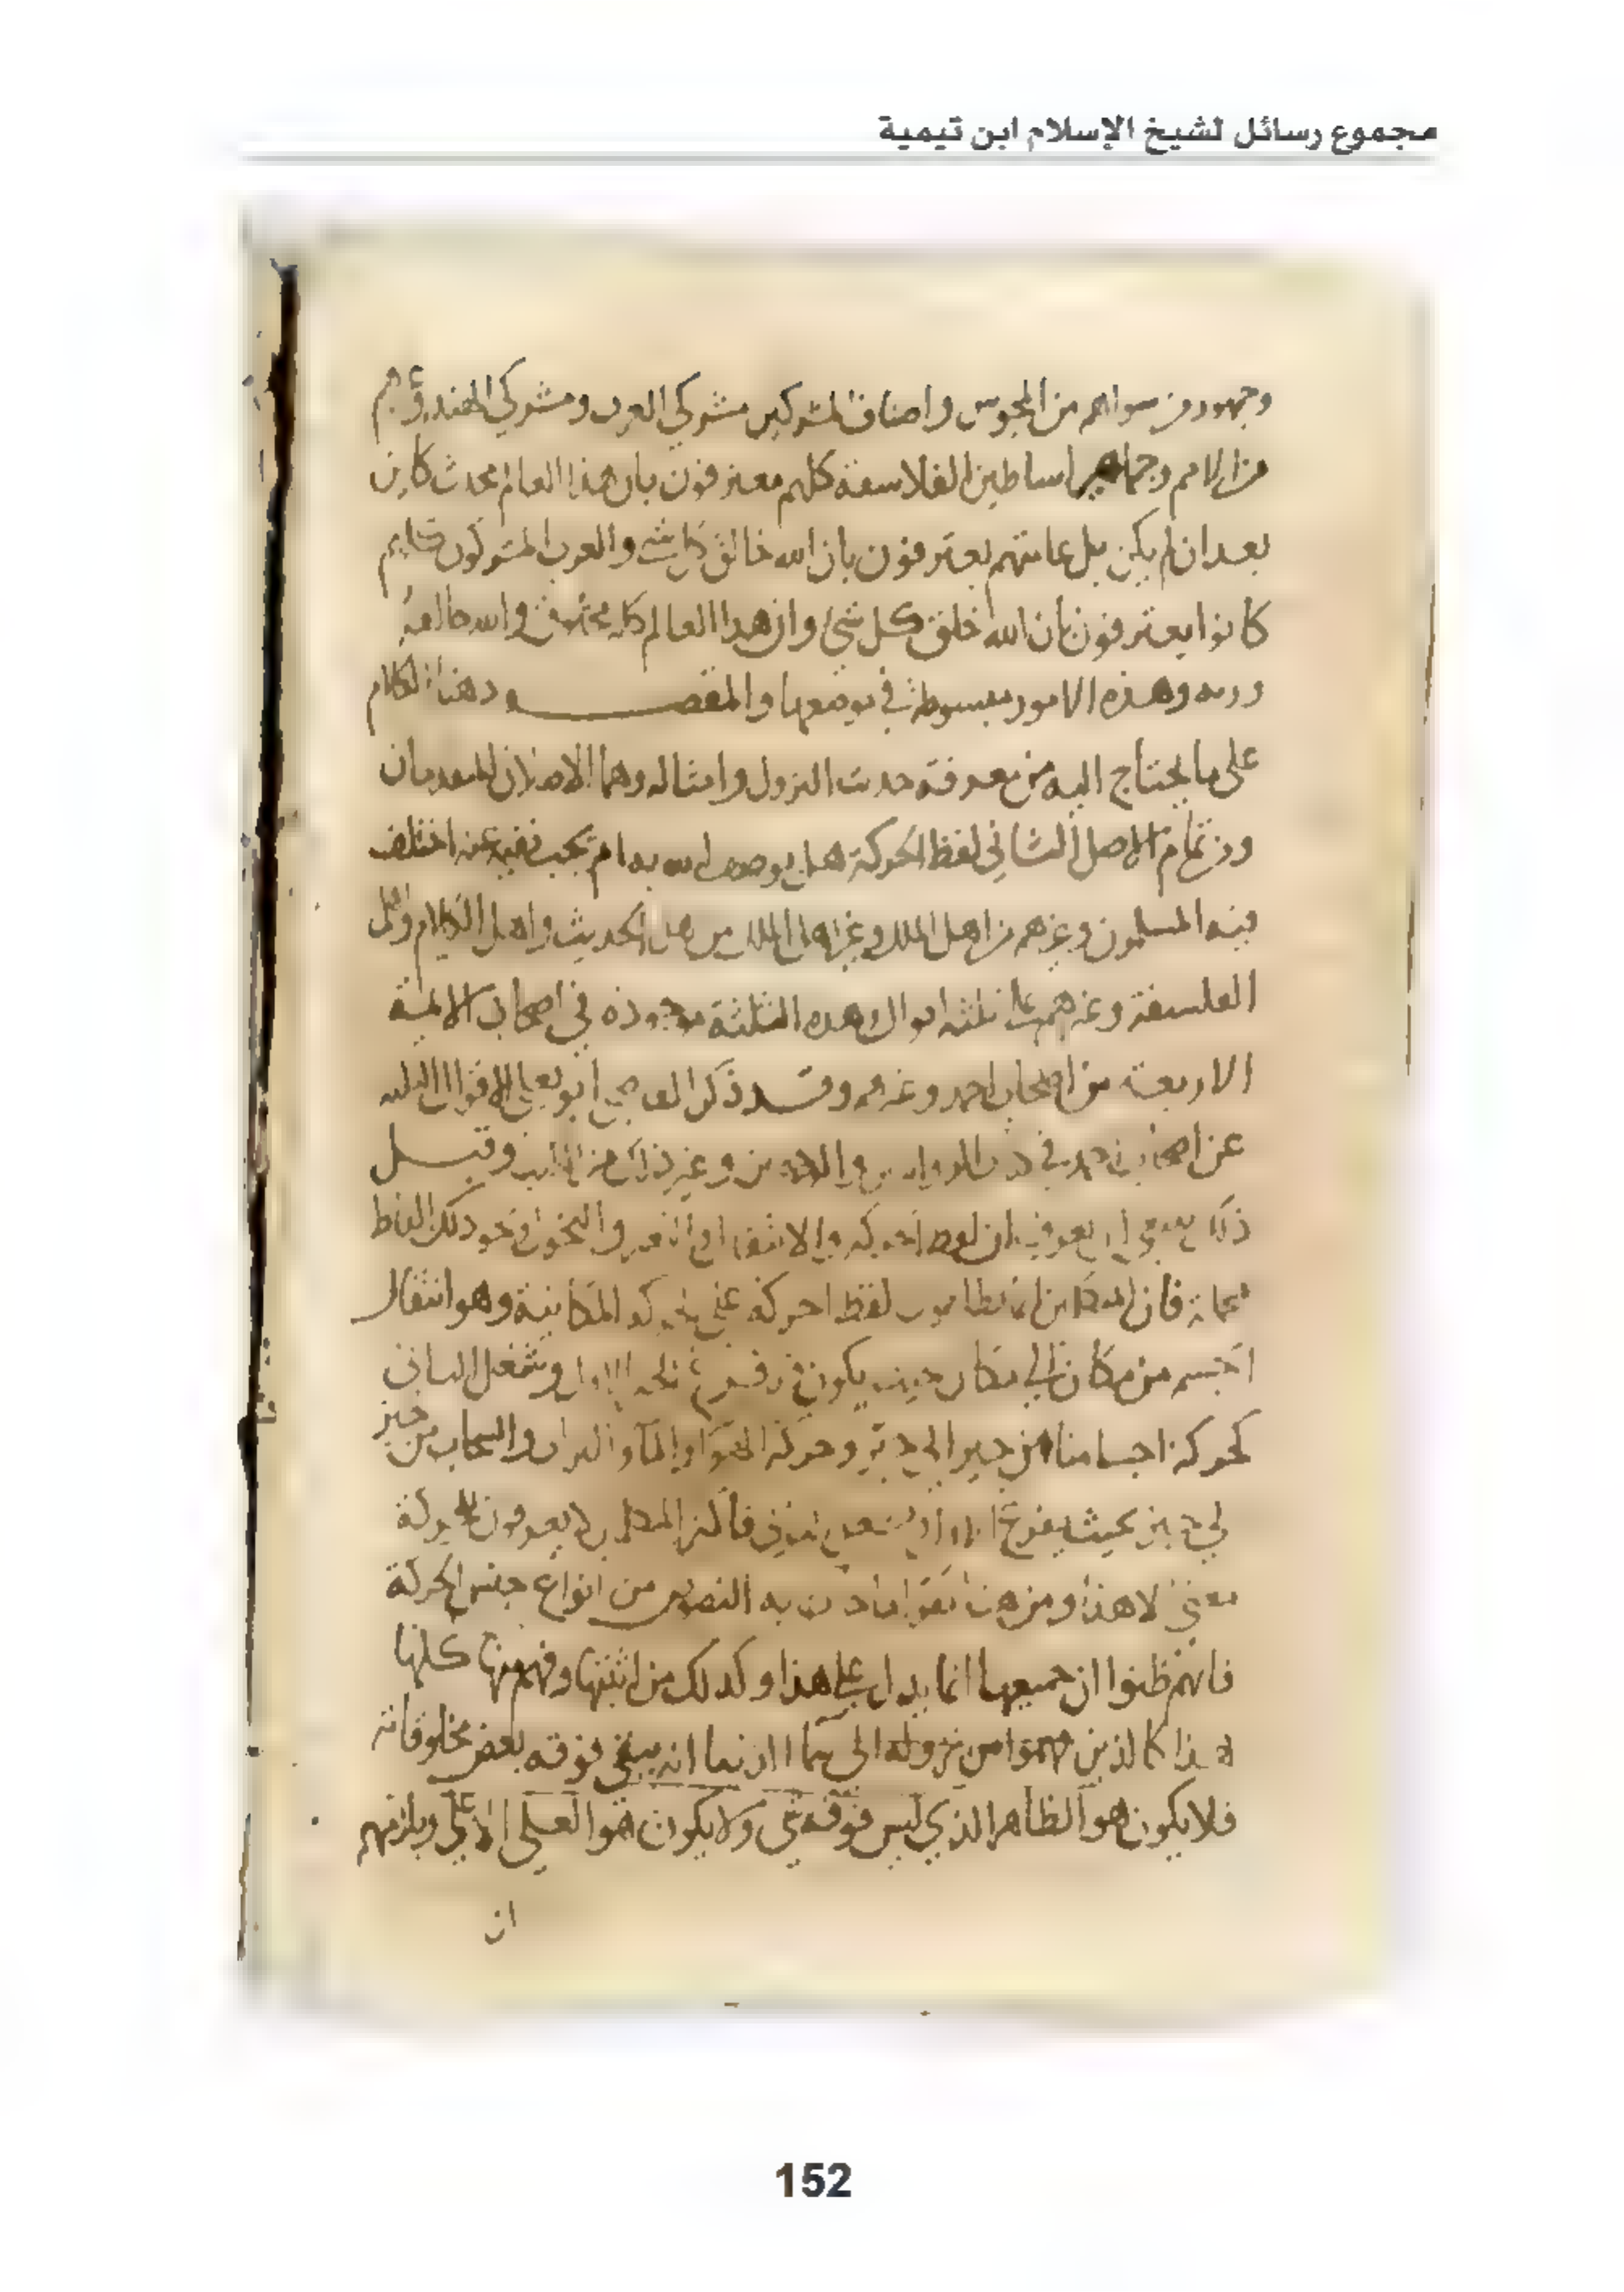 مجموع رسائل لشيخ الإسلام ابن تيمية
وجمهور من سواهم من المجوس واصناف المشركين مشركي العرب ومشركي الهند وغيرهم
من الامم وجماهير اساطين الفلاسفة كلهم معترفون بان هذا العالم محدث كاين
بعد ان لم يكن بل عامتهم يعترفون بان الله خالق كل شي والعرب المشركون كلهم
كانوا يعترفون بان الله خلق كل شي وان هذا العالم كله مخلوق والله خالقه
وربه وهذه الامور مبسوطة في موضعها والمقصود هنا الكلام
على ما يحتاج اليه من معرفة حديث النزول وامثاله وهما الاصلان المتقدمان
ومن تمام الاصل الثاني لفظ الحركة هل يوصف الله به ام يجب نفيه عنه اختلف
فيه المسلمون وغيرهم من اهل الملل وغير اهل الملل من اهل الحديث واهل الكلام واهل
الفلسفة وغيرهم على ثلثة اقوال وهذه الثلثة موجودة في اصحاب الايمة
الاربعة من اصحاب احمد وغيرهم وقد ذكر القاضي ابو يعلى الاقوال الثلثة
عن اصحاب احمد في وغير ذلك من الكتب وقبل
ذلك ان يعرف ان لفظ الحركة والانتقال والتغير والتحول ونحو ذلك الفاظ
مجملة فان المتكلمين انما يطلقون لفظ الحركة على الحركة المكانية وهو انتقال
الجسم من مكان الى مكان بحيث يكون قد فرغ الاول وشغل الثاني
كحركة اجسامنا من حيز الى حيز وحركة الهوا والما والتراب والسحاب من حيز
الى حيز بحيث يفرغ الاول ويشغل الثاني فاكثر المتكلمين لا يعرفون للحركة
معنى الا هذا ومن هنا نفوا ما جات به النصوص من انواع جنس الحركة
فانهم ظنوا ان جميعها انما يدل على هذا وكذلك من اثبتها وفهم منها كلها
هذا كالذين فهموا من نزوله الى سما الدنيا انه يبقى فوقه بعض مخلوقاته
فلا يكون هو الظاهر الذي ليس فوقه شي ولا يكون هو العلي الاعلى ويلزمهم
ان
152